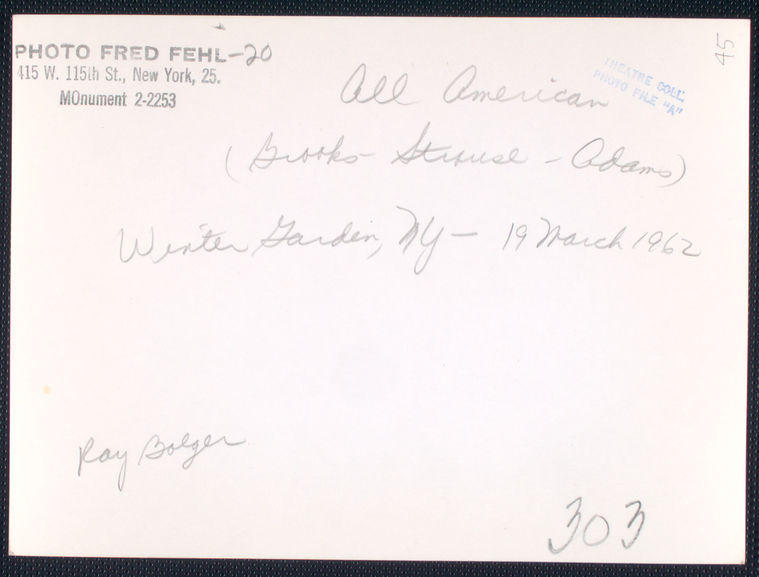 PHOTO FRED FEHL-20
415 W. 115th St., New York, 25.
MOnument 2-2253
45
THEATRE COLL.
PHOTO FILE "A"
All American
(Brooks - Strouse - Adams)
Winter Garden, NY - 19 March 1962
Ray Bolger
303